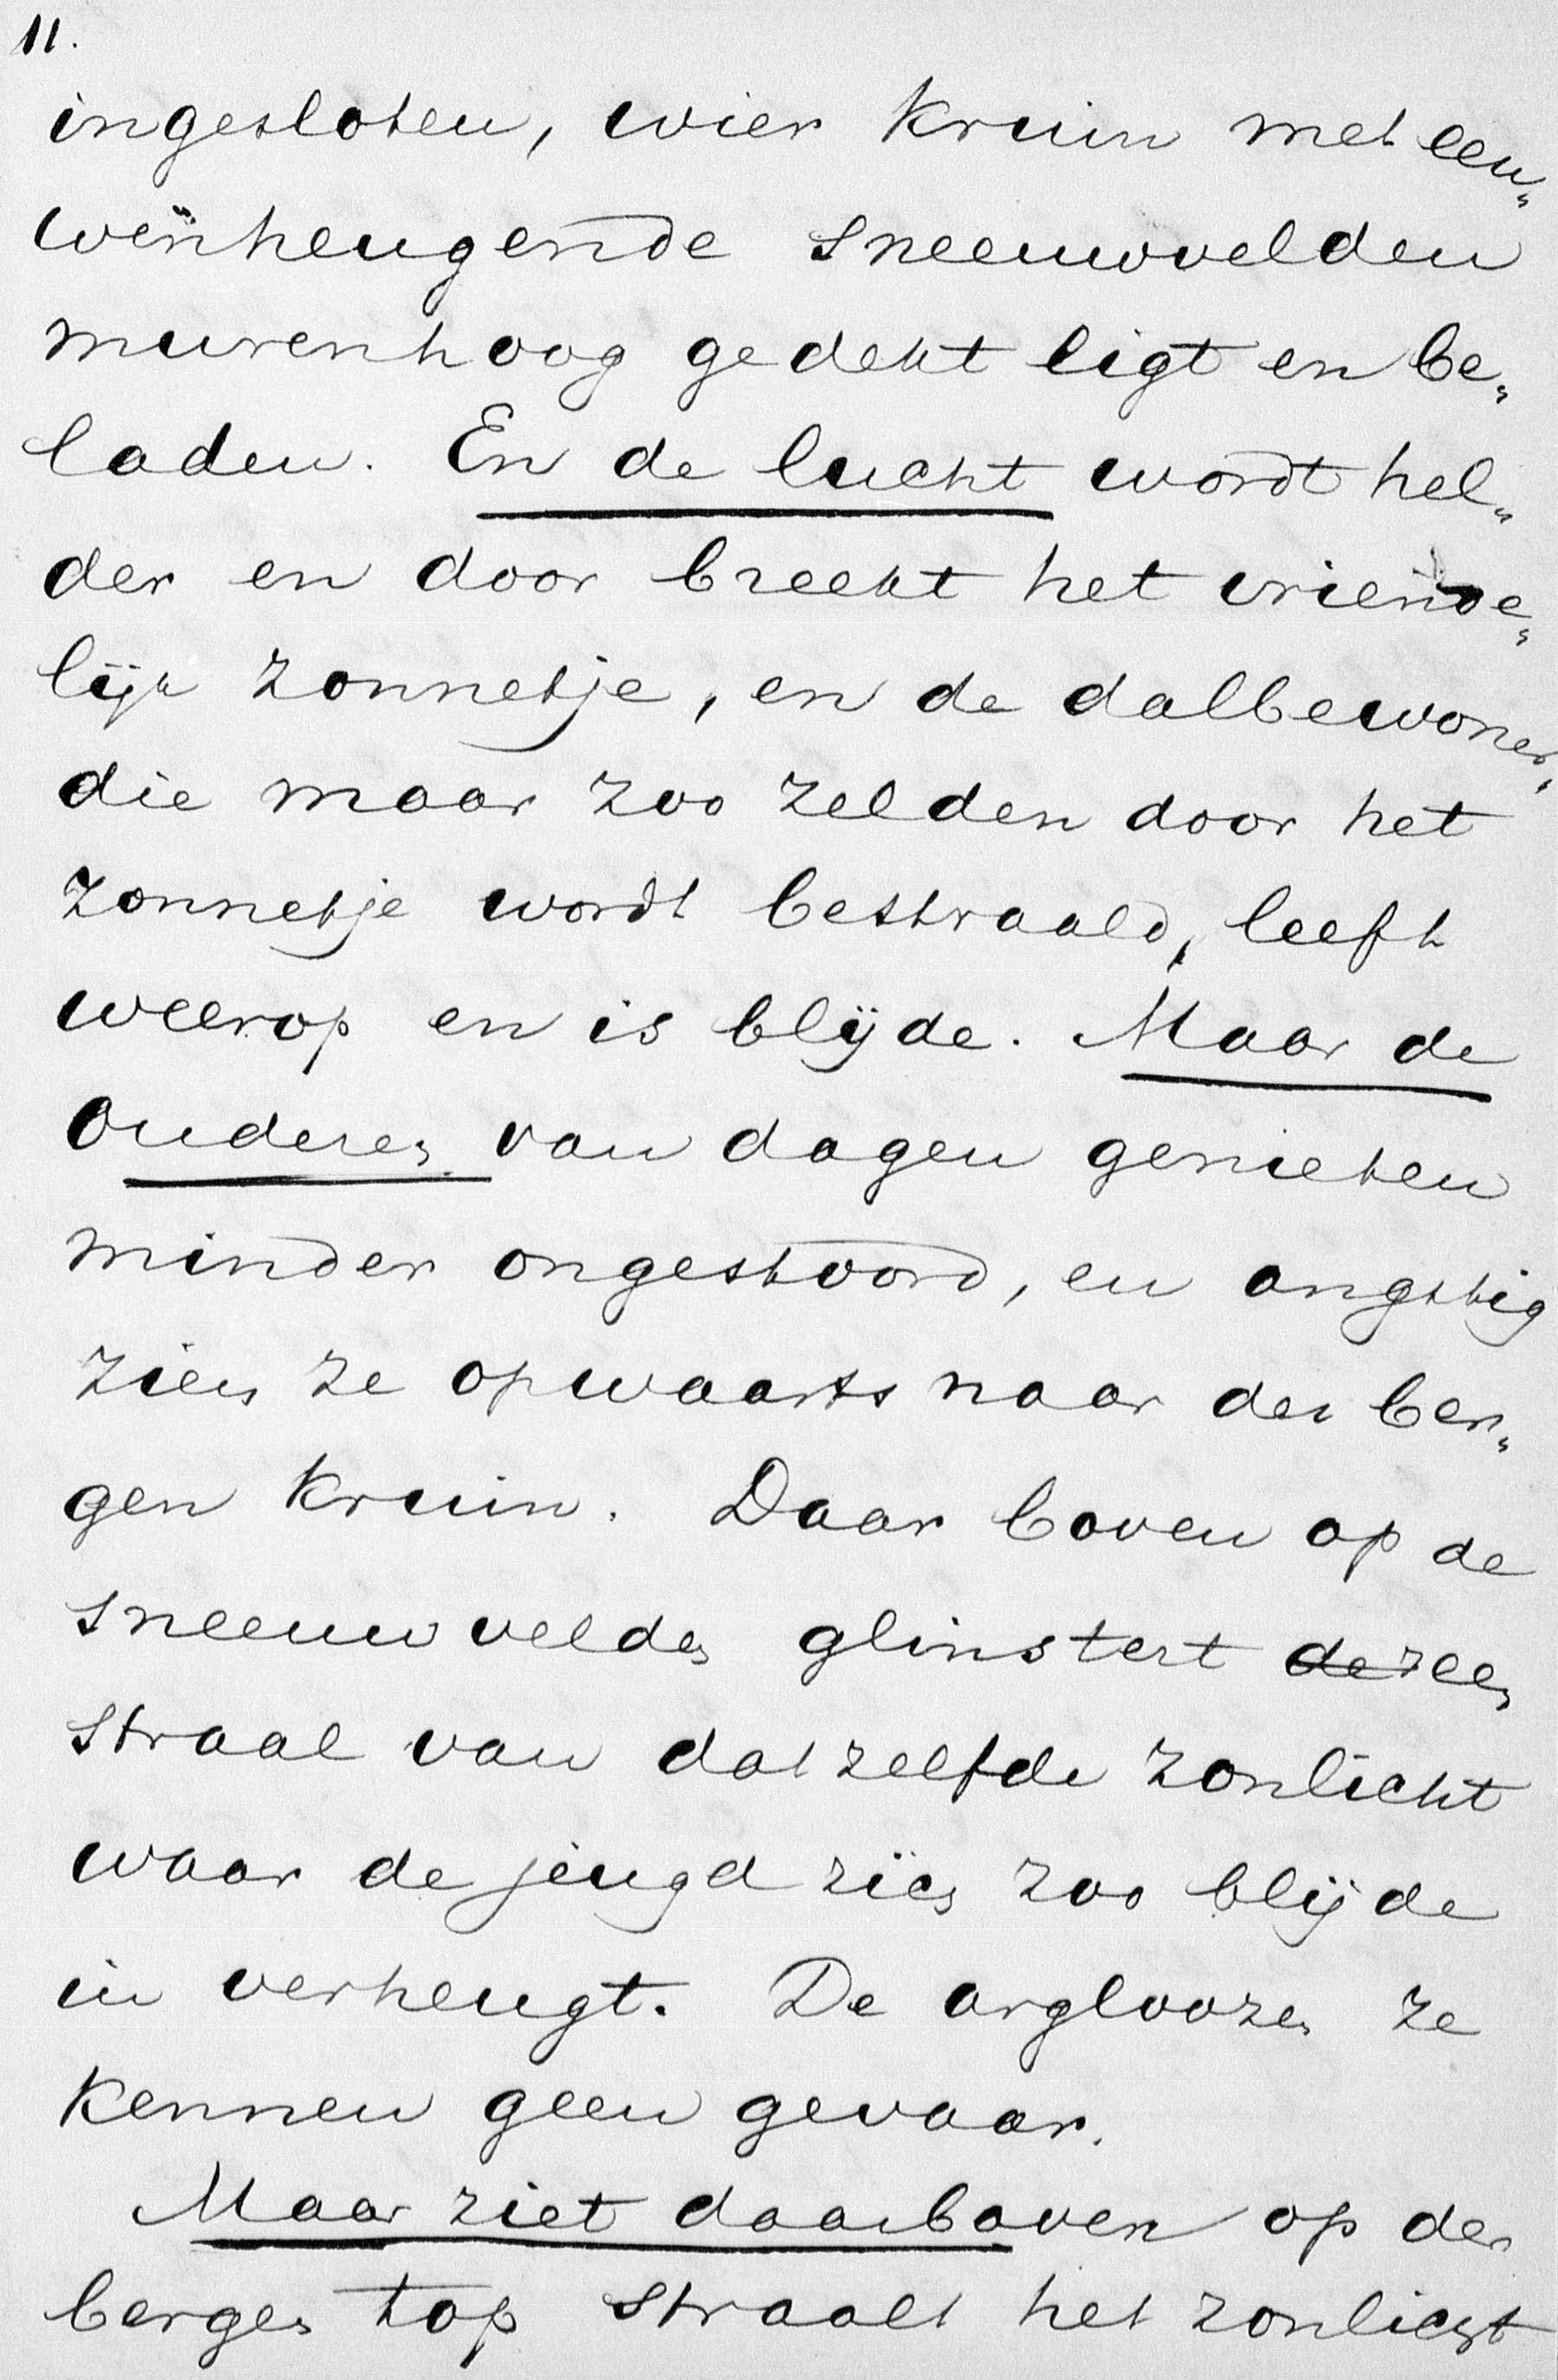 11.
ingesloten, wier kruin met eeu„
wenheugende sneeuwvelden
murenhoog gedekt ligt en be„
laden. En de lucht wordt hel„
der en door breekt het vriende„
lijk zonnetje, en de dalbewoner,
die maar zoo zelden door het
zonnetje wordt bestraald, leeft
weerop en is blijde. Maar de
ouderen van dagen genieten
minder ongestoord, en angstig
zien ze opwaarts naar der ber„
gen kruin. Daar boven op de
sneeuwvelden glinstert een
straal van dat zelfde zonlicht
waar de jeugd zich zoo blijde
in verheugt. De argloozen ze
kennen geen gevaar.
Maar ziet daarboven op der
bergen top straalt het zonlicht